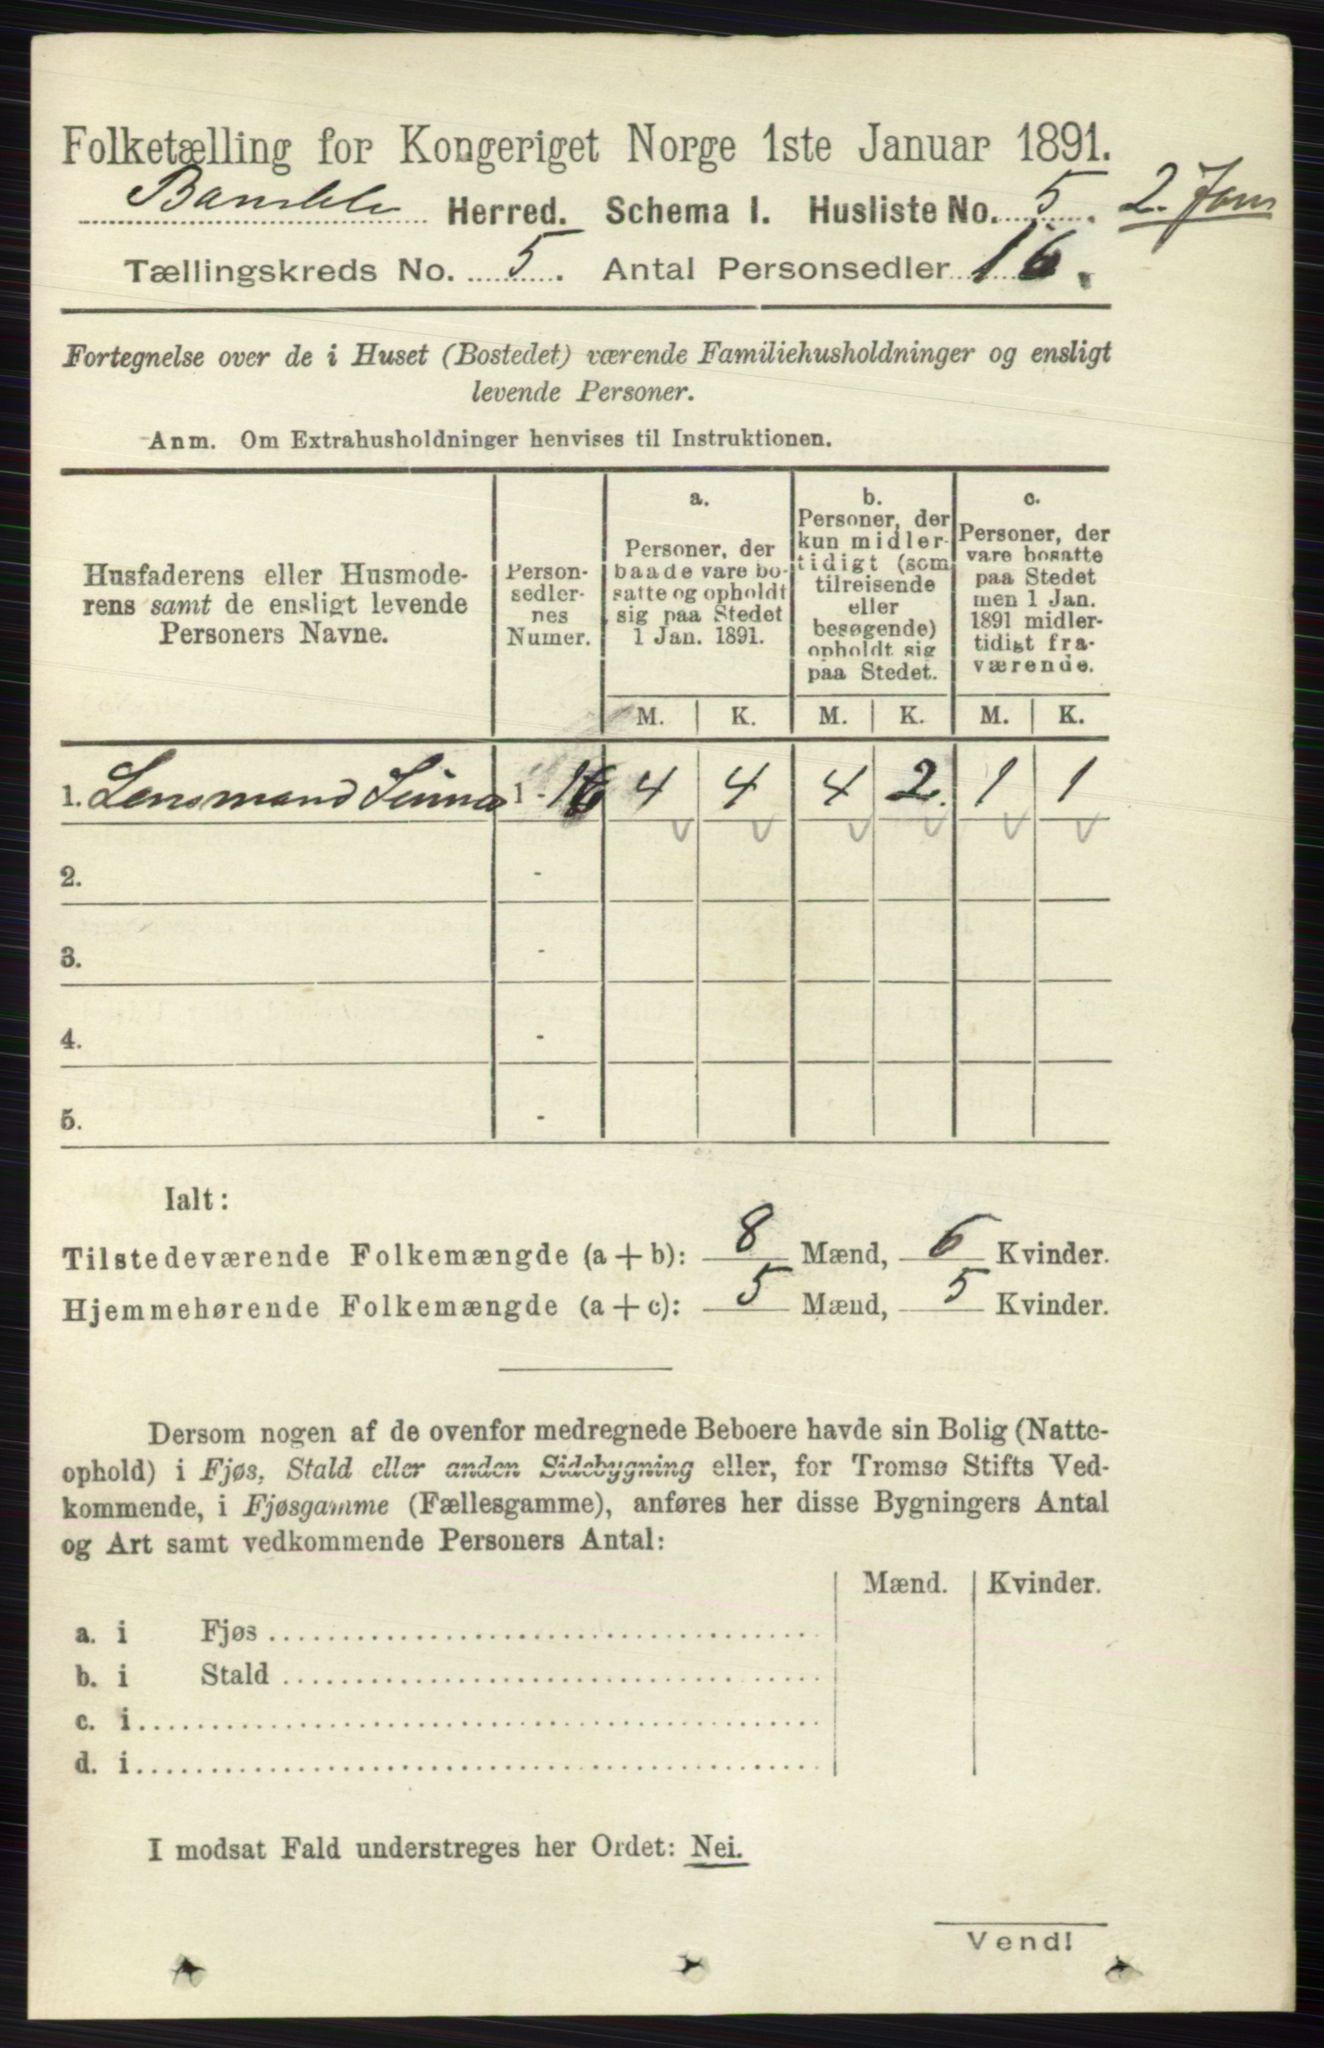 Folketælling for Kongeriget Norge 1ste Januar 1891.
Bamble Herred. Schema I. Husliste No. 5. 2. Jan
Tællingskreds No. 5. Antal Personsedler 16.
Fortegnelse over de i Huset (Bostedet) værende Familiehusholdninger og ensligt
levende Personer.
Anm. Om Extrahusholdninger henvises til Instruktionen.
Husfaderens eller Husmode-
rens samt de ensligt levende
Personers Navne.
Person-
sedler-
nes
Numer.
a.
Personer, der
baade vare bo-
satte og opholdt
sig paa Stedet
1 Jan. 1891.
b.
Personer, der
kun midler-
tidigt (som
tilreisende
eller
besøgende)
opholdt sig
paa Stedet.
c.
Personer, der
vare bosatte
paa Stedet
men 1 Jan.
1891 midler-
tidigt fra-
værende.
M. K. M. K. M. K.
1. Lensmand 1 - 16 4 4 4 2. 1 1
2. -
3. -
4. -
5. -
Ialt:
Tilstedeværende Folkemængde (a + b): 8 Mænd, 6 Kvinder.
Hjemmehørende Folkemængde (a + c): 5 Mænd, 5 Kvinder.
Dersom nogen af de ovenfor medregnede Beboere havde sin Bolig (Natte-
ophold) i Fjøs, Stald eller anden Sidebygning eller, for Tromsø Stifts Ved-
kommende, i Fjøsgamme (Fællesgamme), anføres her disse Bygningers Antal
og Art samt vedkommende Personers Antal:
Mænd. Kvinder.
a. i Fjøs
b. i Stald
c. i
d. i
I modsat Fald understreges her Ordet: Nei.
Vend!